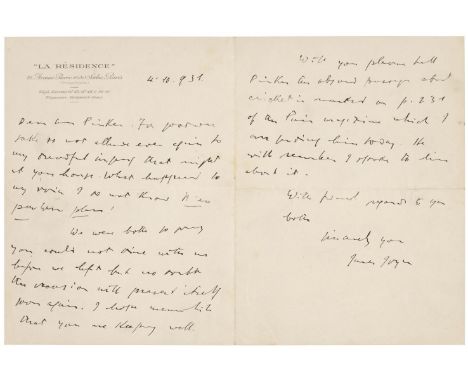 "LA RÉSIDENCE"
4.10.931
Dear Mrs Pinker: For goodness
sake do not allude ever again to
my dreadful singing that night
at your house. What happened to
my voice I do not know. Non
parliamo plus!
We were both so sorry
you could not dine with us
before we left but no doubt
the occasion will present itself
soon again. I hope meanwhile
that you are keeping well.
Will you please tell
Pinker the absurd passage about
cricket is marked on p. 231
of the Paris magazine which I
am sending him today. He
will remember I spoke to him
about it.
With friend regards to you
both
sincerely yours
James Joyce